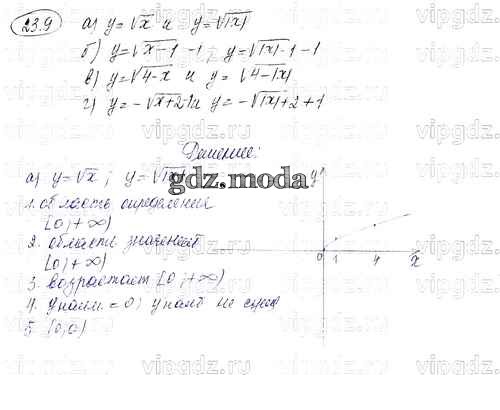 23.9 а) y=√x и y=√|x|
б) y=√x-1 -1; y=√|x|-1 -1
в) y=√4-x и y=√4-|x|
г) y=-√x+2+1 и y=-√|x|+2 +1
Решение:
а) y=√x; y=√|x|
gdz.moda
1. область определения
[0;+∞)
2. область значений
[0;+∞)
3. возрастает [0;+∞)
4. y наим = 0; y наиб не сущ
5. (0,0)
y
0 1 4 x
vipgdz.ru